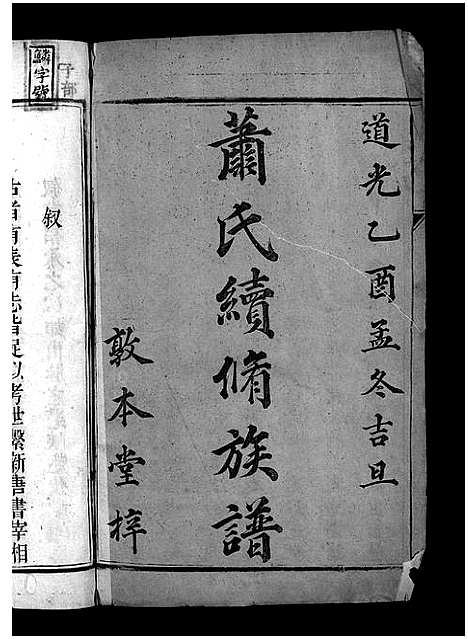 道光乙酉孟冬吉旦
蕭氏續脩族譜
敦本堂梓
鱗字號
叙
古者有表有志皆足以考世繫新唐書宰相